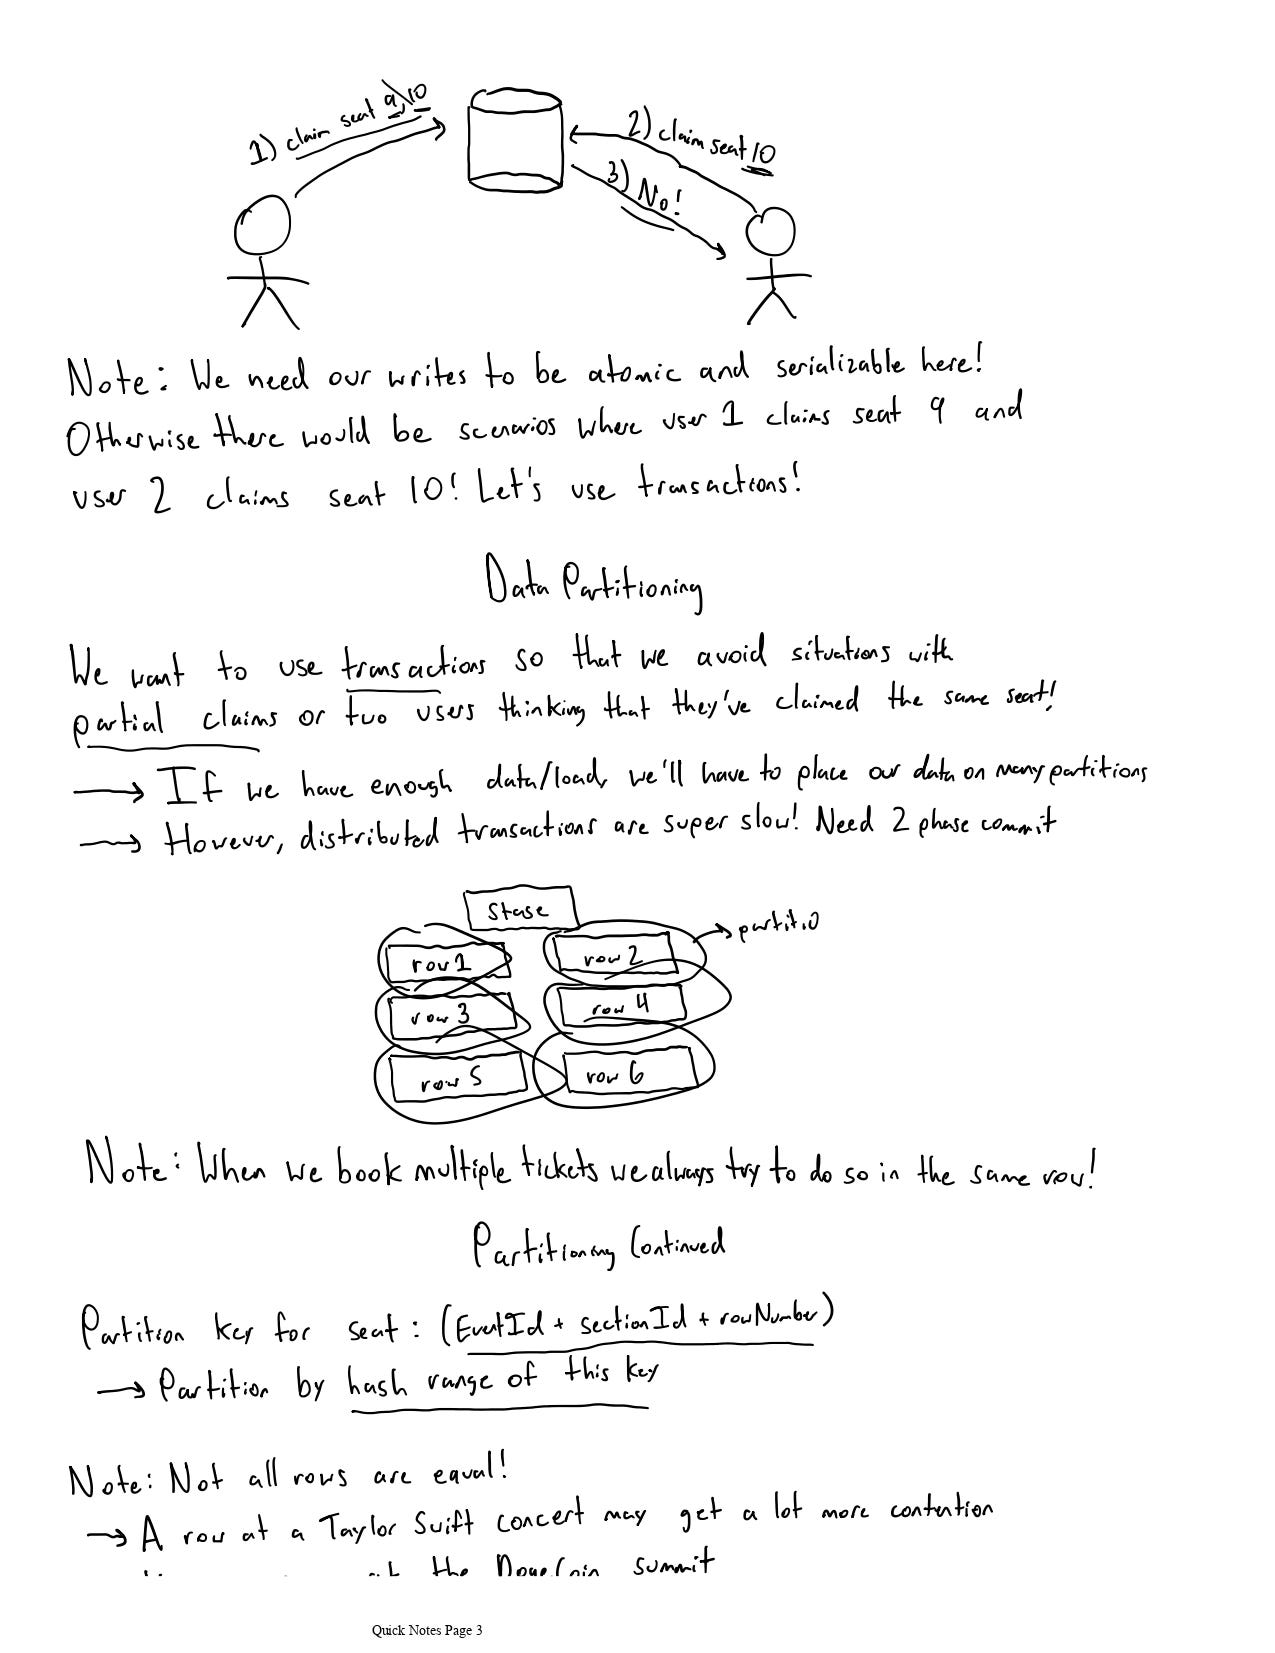 1) claim seat 9,10
2) claim seat 10
3) No!
Note: We need our writes to be atomic and serializable here!
Otherwise there would be scenarios where user 1 claims seat 9 and
user 2 claims seat 10! Let's use transactions!
Data Partitioning
We want to use transactions so that we avoid situations with
partial claims or two users thinking that they've claimed the same seat!
→ If we have enough data/load, we'll have to place our data on many partitions
→ However, distributed transactions are super slow! Need 2 phase commit
Stage
row 1
row 2
→ partitio
row 3
row 4
row 5
row 6
Note: When we book multiple tickets we always try to do so in the same row!
Partitioning Continued
Partition key for seat: (EventId + sectionId + rowNumber)
→ Partition by hash range of this key
Note: Not all rows are equal!
→ A row at a Taylor Swift concert may get a lot more contention
at the DogeCoin summit
Quick Notes Page 3